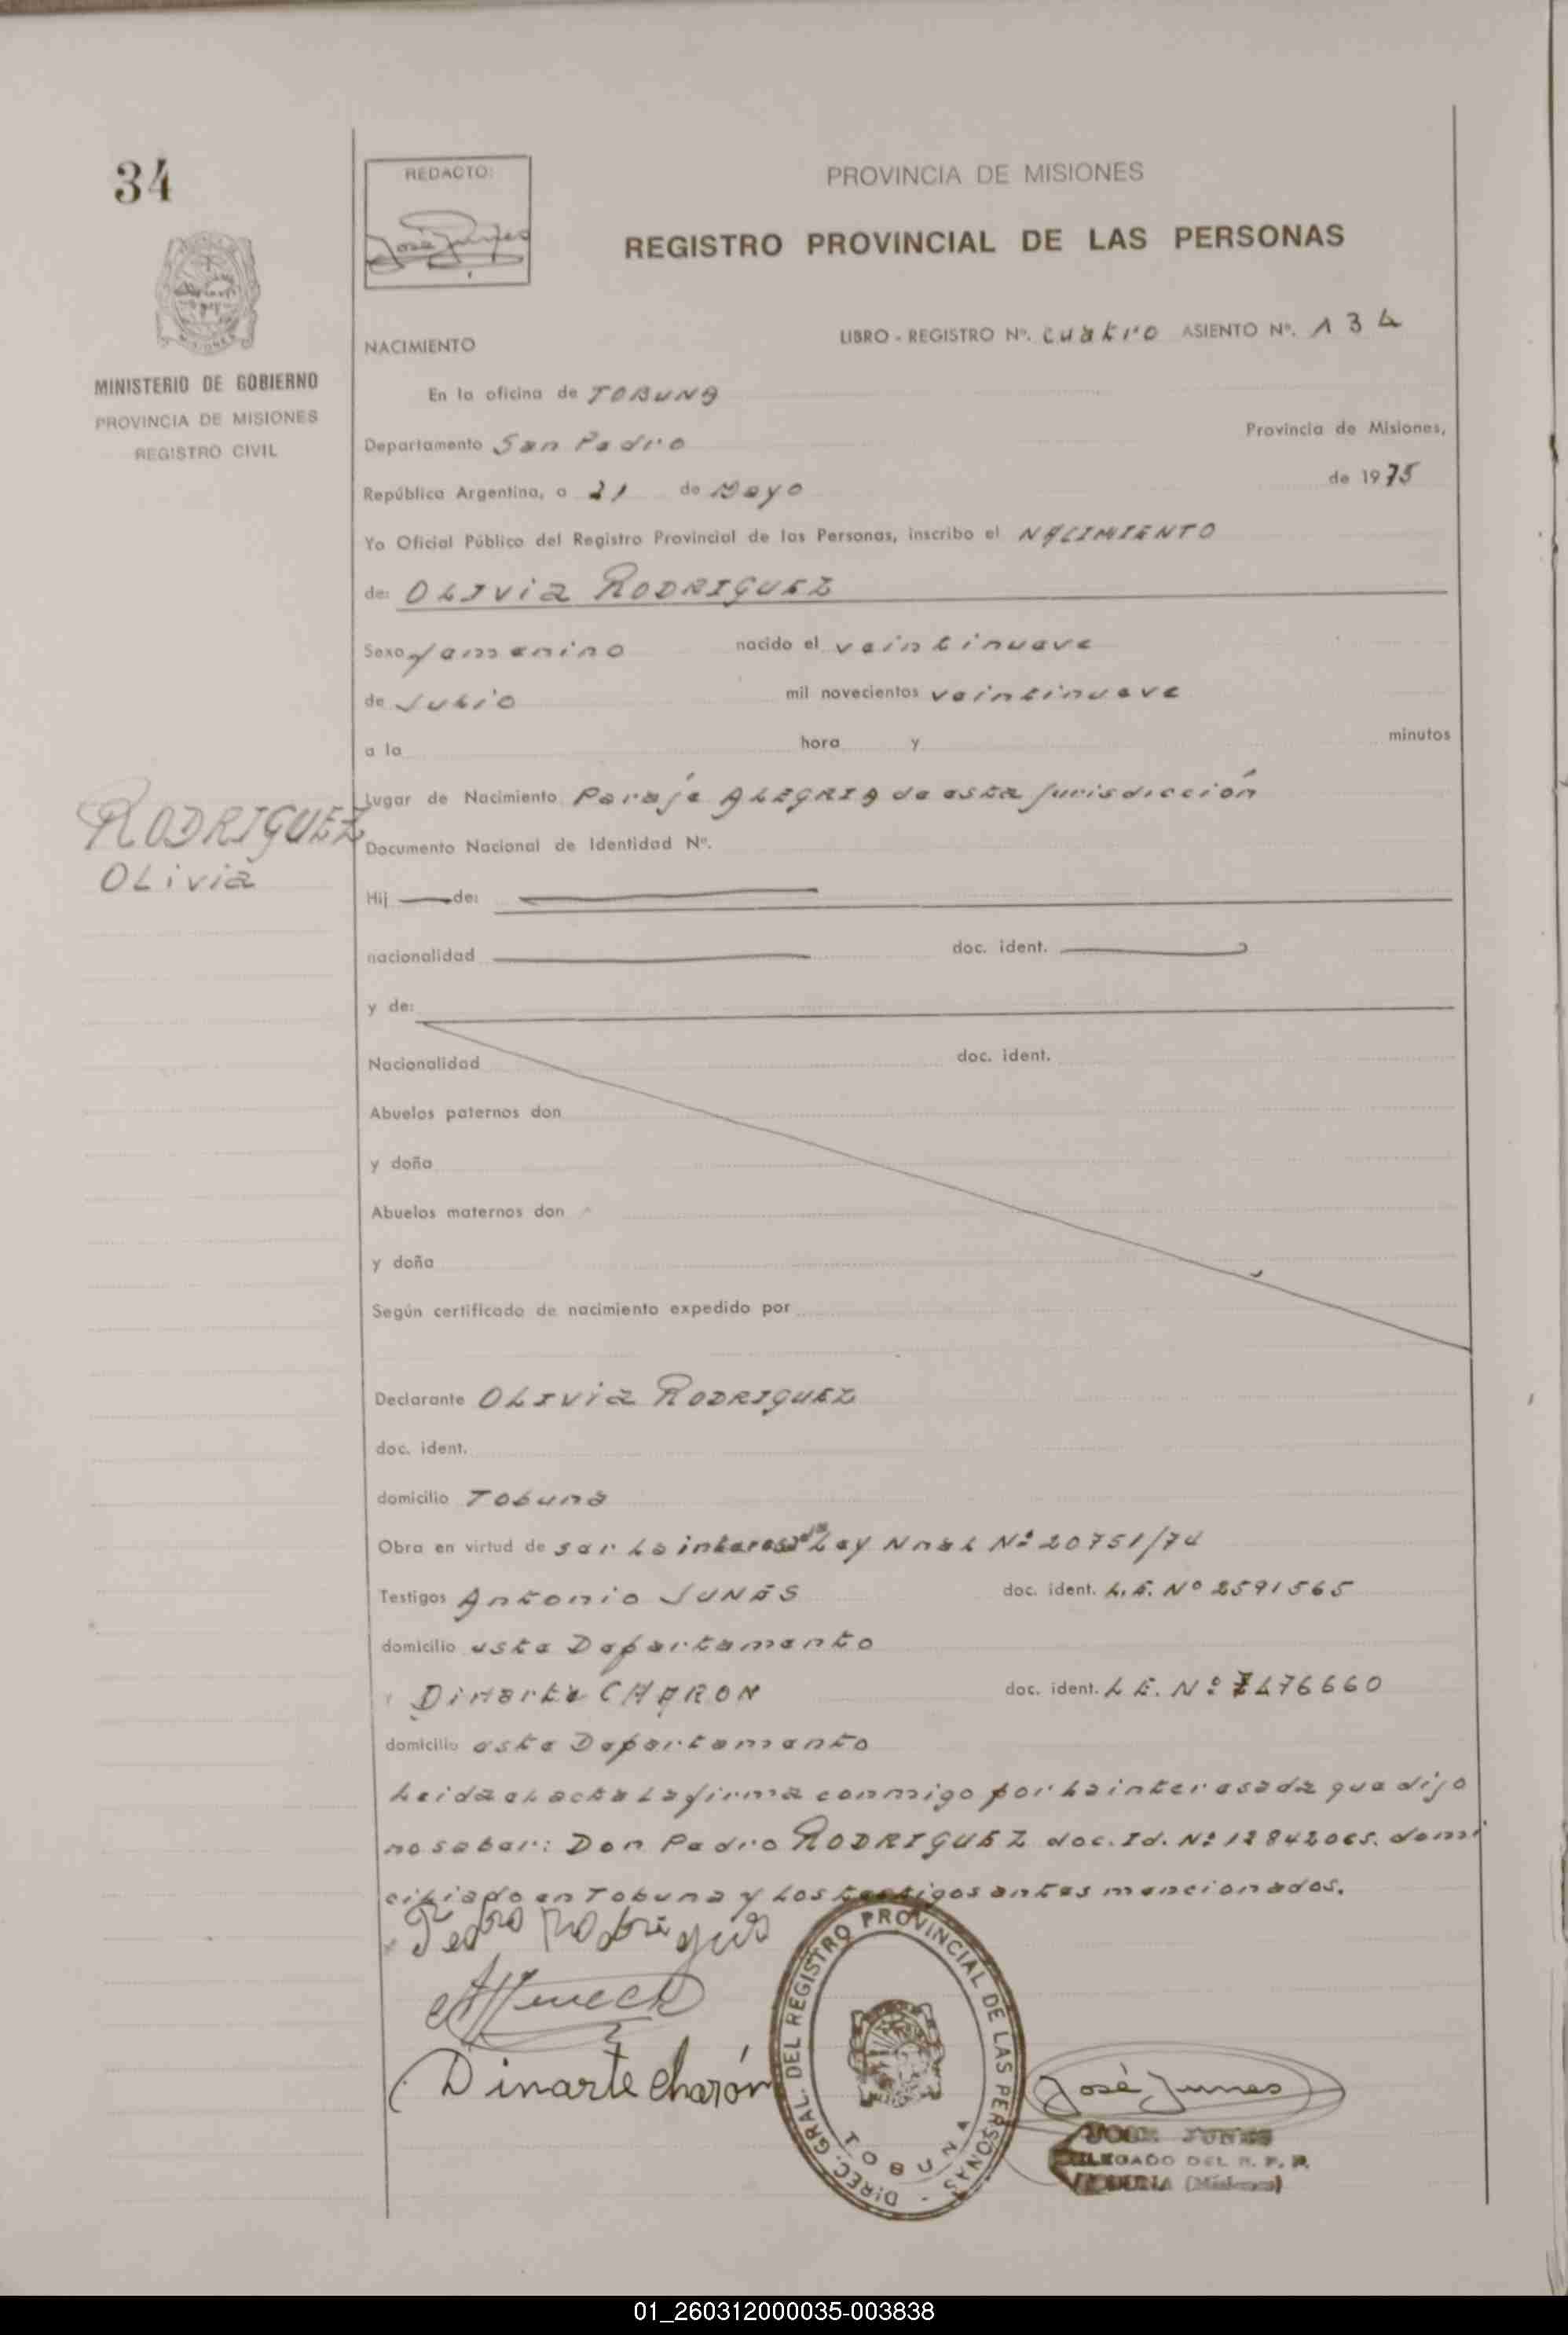 34
REDACTO:
José Junes
PROVINCIA DE MISIONES
REGISTRO PROVINCIAL DE LAS PERSONAS
MINISTERIO DE GOBIERNO
PROVINCIA DE MISIONES
REGISTRO CIVIL
NACIMIENTO
LIBRO - REGISTRO Nº. cuatro ASIENTO Nº. 134
En la oficina de TOBUNA
Departamento San Pedro Provincia de Misiones,
República Argentina, a 21 de Mayo de 1975
Yo Oficial Público del Registro Provincial de las Personas, inscribo el NACIMIENTO
de: OLIVIA RODRIGUEZ
Sexo femenino nacido el veintinueve
de Julio mil novecientos veintinueve
a la hora y minutos
Lugar de Nacimiento Paraje ALEGRIA de esta jurisdicción
RODRIGUEZ
OLivia
Documento Nacional de Identidad Nº.
Hij de:
nacionalidad doc. ident.
y de:
Nacionalidad doc. ident.
Abuelos paternos don
y doña
Abuelos maternos don
y doña
Según certificado de nacimiento expedido por
Declarante OLIVIA RODRIGUEZ
doc. ident.
domicilio Tobuna
Obra en virtud de ser La interesada Ley Nnal Nº 20751/74
Testigos Antonio JUNES doc. ident. L.E. Nº 2591565
domicilio este Departamento
y Dinarte CHARON doc. ident. L E. Nº 7476660
domicilio este Departamento
Leida el acta La firma conmigo por La interesada que dijo
no saber: Don Pedro RODRIGUEZ doc. Id. Nº 12842065. domi
ciliado en Tobuna y Los testigos antes mencionados.
Pedro Rodrigues
Dinarte Charón
DIREC. GRAL. DEL REGISTRO PROVINCIAL DE LAS PERSONAS -
TOBUNA
José Junes
JOSE JUNES
DELEGADO DEL R. P. P.
TOBUNA (Misiones)
01_260312000035-003838